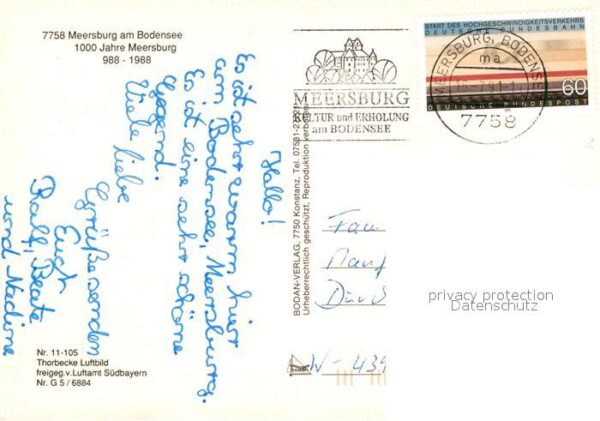 7758 Meersburg am Bodensee
1000 Jahre Meersburg
988 - 1988
Hallo!
Es ist sehr warm hier
am Bodensee, Meersburg.
Es ist eine sehr schöne
Gegend.
Viele liebe
Grüße senden
Euch
Ralf, Beate
und Nadine
Nr. 11-105
Thorbecke Luftbild
freigeg.v.Luftamt Südbayern
Nr. G 5/6884
BODAN-VERLAG, 7750 Konstanz, Tel. 07531-
Urheberrechtlich geschützt, Reproduktion verboten
MEERSBURG
KULTUR und ERHOLUNG
am BODENSEE
MEERSBURG, BODENSEE
ma
7758
START DES HOCHGESCHWINDIGKEITSVERKEHRS
DEUTSCHE BUNDESBAHN
60
DEUTSCHE BUNDESPOST
W - 439
privacy protection
Datenschutz